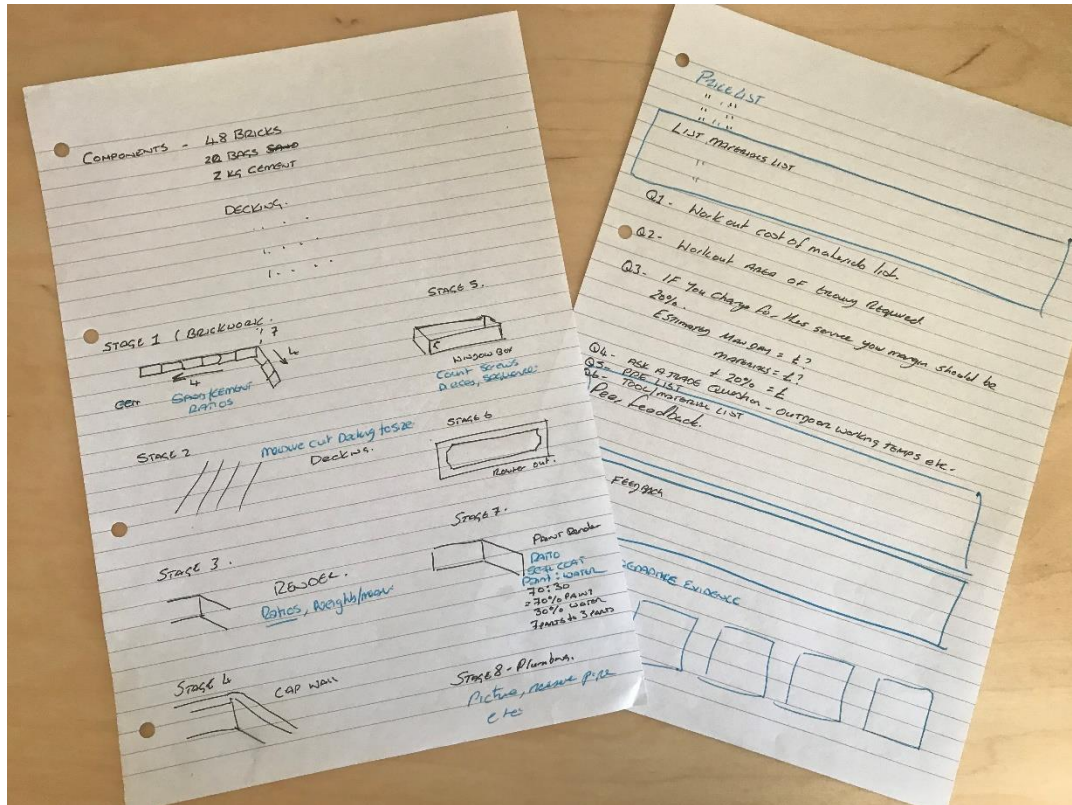 COMPONENTS - 48 BRICKS
BAGS SAND
2 KG CEMENT
DECKING.
STAGE 1 (BRICKWORK.
7
4
4
SAND/CEMENT
RATIOS
STAGE 2
measure cut Decking to size
DECKING.
STAGE 3.
RENDER.
Ratios, Weights/measure
STAGE 4
CAP WALL
STAGE 5.
WINDOW BOX
Count screws
PIECES, SEQUENCE
STAGE 6
Router out.
STAGE 7.
PAINT Render
RATIO
SEAL COAT
PAINT : WATER
70 : 30
= 70% PAINT
30% WATER
7 PARTS to 3 PARTS
STAGE 8 - Plumbing.
Picture, measure pipe
etc
PRICE LIST
LIST MATERIALS LIST
Q1- Work out cost of materials list.
Q2- Workout AREA OF Required.
Q3- IF You Charge for this service you margin should be
20%.
Estimated Man DAY = £?
MATERIALS = £?
+ 20% = £
Q4- ASK A TRADE Question - OUTDOOR WORKING TEMPS etc.
Q5- PPE LIST
Q6- TOOL/MATERIAL LIST
Peer Feedback.
FEEDBACK
EVIDENCE